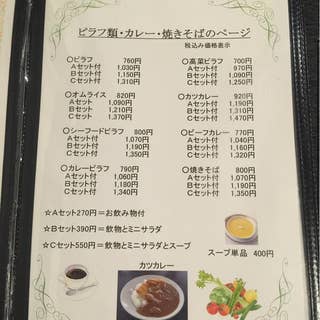 ピラフ類・カレー・焼きそばのページ
税込み価格表示
○ピラフ 760円
Aセット付 1,030円
Bセット付 1,150円
Cセット付 1,310円
○オムライス 820円
Aセット 1,090円
Bセット 1,210円
Cセット 1,370円
○シーフードピラフ 800円
Aセット付 1,070円
Bセット付 1,190円
Cセット付 1,350円
○カレーピラフ 790円
Aセット付 1,060円
Bセット付 1,180円
Cセット付 1,340円
○高菜ピラフ 700円
Aセット付 970円
Bセット付 1,090円
Cセット付 1,250円
○カツカレー 920円
Aセット付 1,190円
Bセット付 1,310円
Cセット付 1,470円
○ビーフカレー 770円
Aセット付 1,040円
Bセット付 1,160円
Cセット付 1,320円
○焼きそば 800円
Aセット付 1,070円
Bセット付 1,190円
Cセット付 1,350円
☆Aセット270円=お飲み物付
☆Bセット390円=飲物とミニサラダ
☆Cセット550円=飲物とミニサラダとスープ
スープ単品 400円
カツカレー